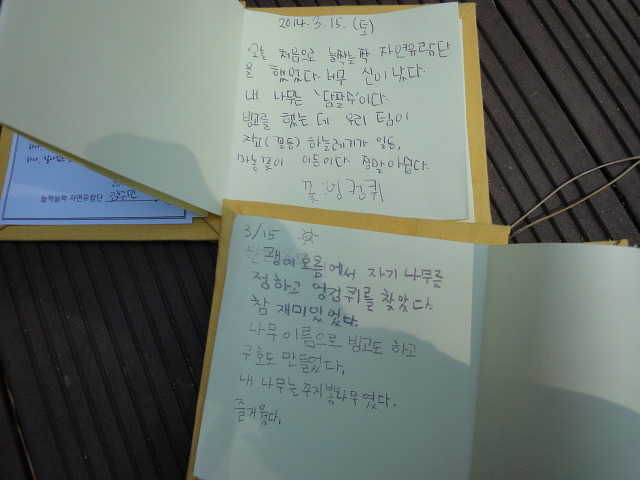 2014.3.15.(토)
오늘 처음으로 놀짝놀짝 자연유람단
을 했었다. 너무 신이 났다.
내 나무는 '담팔수'이다.
빙고를 했는 데 우리 팀이
자꾸(꼴등) 하늘레기가 일등,
마농꽃이 이등이다. 정말 아쉽다.
꽃:엉컹퀴
놀짝놀짝 자연유람단
3/15
괭이오름에서 자기 나무를
정하고 엉겅퀴를 찾았다.
참 재미있었다.
나무 이름으로 빙고도 하고
구호도 만들었다.
내 나무는 꾸지뽕나무였다.
즐거웠다.